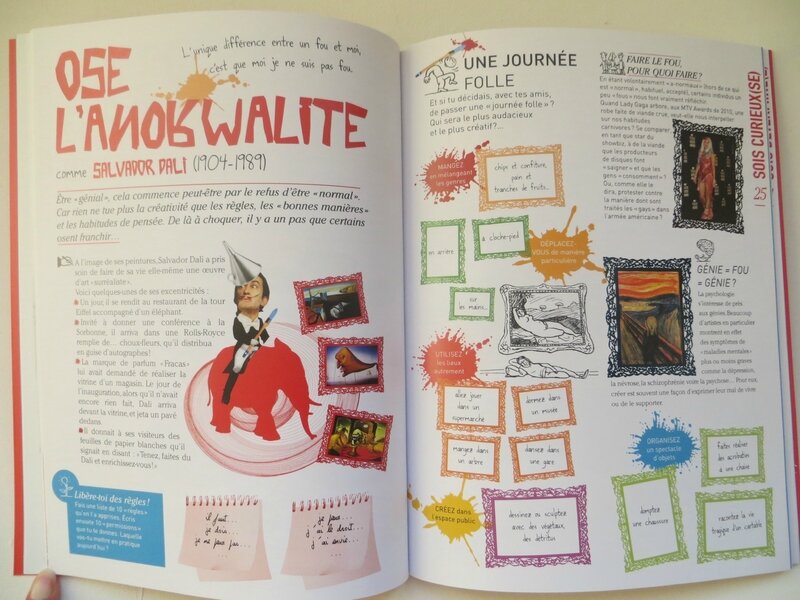 OSE
L'ANORMALITE
comme SALVADOR DALI (1904-1989)
L'unique différence entre un fou et moi,
c'est que moi je ne suis pas fou.
Être «génial», cela commence peut-être par le refus d'être «normal».
Car rien ne tue plus la créativité que les règles, les «bonnes manières»
et les habitudes de pensée. De là à choquer, il y a un pas que certains
osent franchir...
A l'image de ses peintures, Salvador Dali a pris
soin de faire de sa vie elle-même une œuvre
d'art «surréaliste».
Voici quelques-unes de ses excentricités :
Un jour, il se rendit au restaurant de la tour
Eiffel accompagné d'un éléphant.
Invité à donner une conférence à la
Sorbonne, il arriva dans une Rolls-Royce
remplie de... choux-fleurs, qu'il distribua
en guise d'autographes!
La marque de parfum «Fracas»
lui avait demandé de réaliser la
vitrine d'un magasin. Le jour de
l'inauguration, alors qu'il n'avait
encore rien fait, Dali arriva
devant la vitrine, et jeta un pavé
dedans.
Il donnait à ses visiteurs des
feuilles de papier blanches qu'il
signait en disant : «Tenez, faites du
Dali et enrichissez-vous!»
Libère-toi des règles !
Fais une liste de 10 «règles»
qu'on t'a apprises. Écris
ensuite 10 «permissions»
que tu te donnes. Laquelle
vas-tu mettre en pratique
aujourd'hui ?
il faut...
je dois...
je ne peux pas...
je peux...
j'ai le droit...
j'ai envie...
UNE JOURNÉE
FOLLE
Et si tu décidais, avec tes amis,
de passer une «journée folle» ?
Qui sera le plus audacieux
et le plus créatif?...
MANGEZ
en mélangeant
les genres
chips et confiture,
pain et
tranches de fruits...
en arrière
à cloche-pied
sur les mains...
DÉPLACEZ-
VOUS de manière
particulière
UTILISEZ
les lieux
autrement
allez jouer
dans un
supermarché
dormez dans
un musée
mangez dans
un arbre
dansez dans
une gare
CRÉEZ dans
l'espace public
dessinez ou sculptez
avec des végétaux,
des détritus
FAIRE LE FOU,
POUR QUOI FAIRE ?
En étant volontairement «a-normaux» (hors de ce qui
est «normal», habituel, accepté), certains individus un
peu «fous» nous font vraiment réfléchir.
Quand Lady Gaga arbore, aux MTV Awards de 2010, une
robe faite de viande crue, veut-elle nous interpeller
sur nos habitudes
carnivores? Se comparer,
en tant que star du
showbiz, à de la viande
que les producteurs
de disques font
«saigner» et que les
gens «consomment»?
Ou, comme elle le
dira, protester contre
la manière dont sont
traités les «gays» dans
l'armée américaine ?
GÉNIE = FOU
= GÉNIE ?
La psychologie
s'intéresse de près
aux génies. Beaucoup
d'artistes en particulier
montrent en effet
des symptômes de
«maladies mentales»
plus ou moins graves
comme la dépression,
la névrose, la schizophrénie voire la psychose... Pour eux,
créer est souvent une façon d'exprimer leur mal de vivre
ou de le supporter.
ORGANISEZ
un spectacle
d'objets
faites réaliser
des acrobaties
à une chaise
domptez
une chaussure
racontez la vie
tragique d'un cartable
25
SOIS CURIEUX(SE)